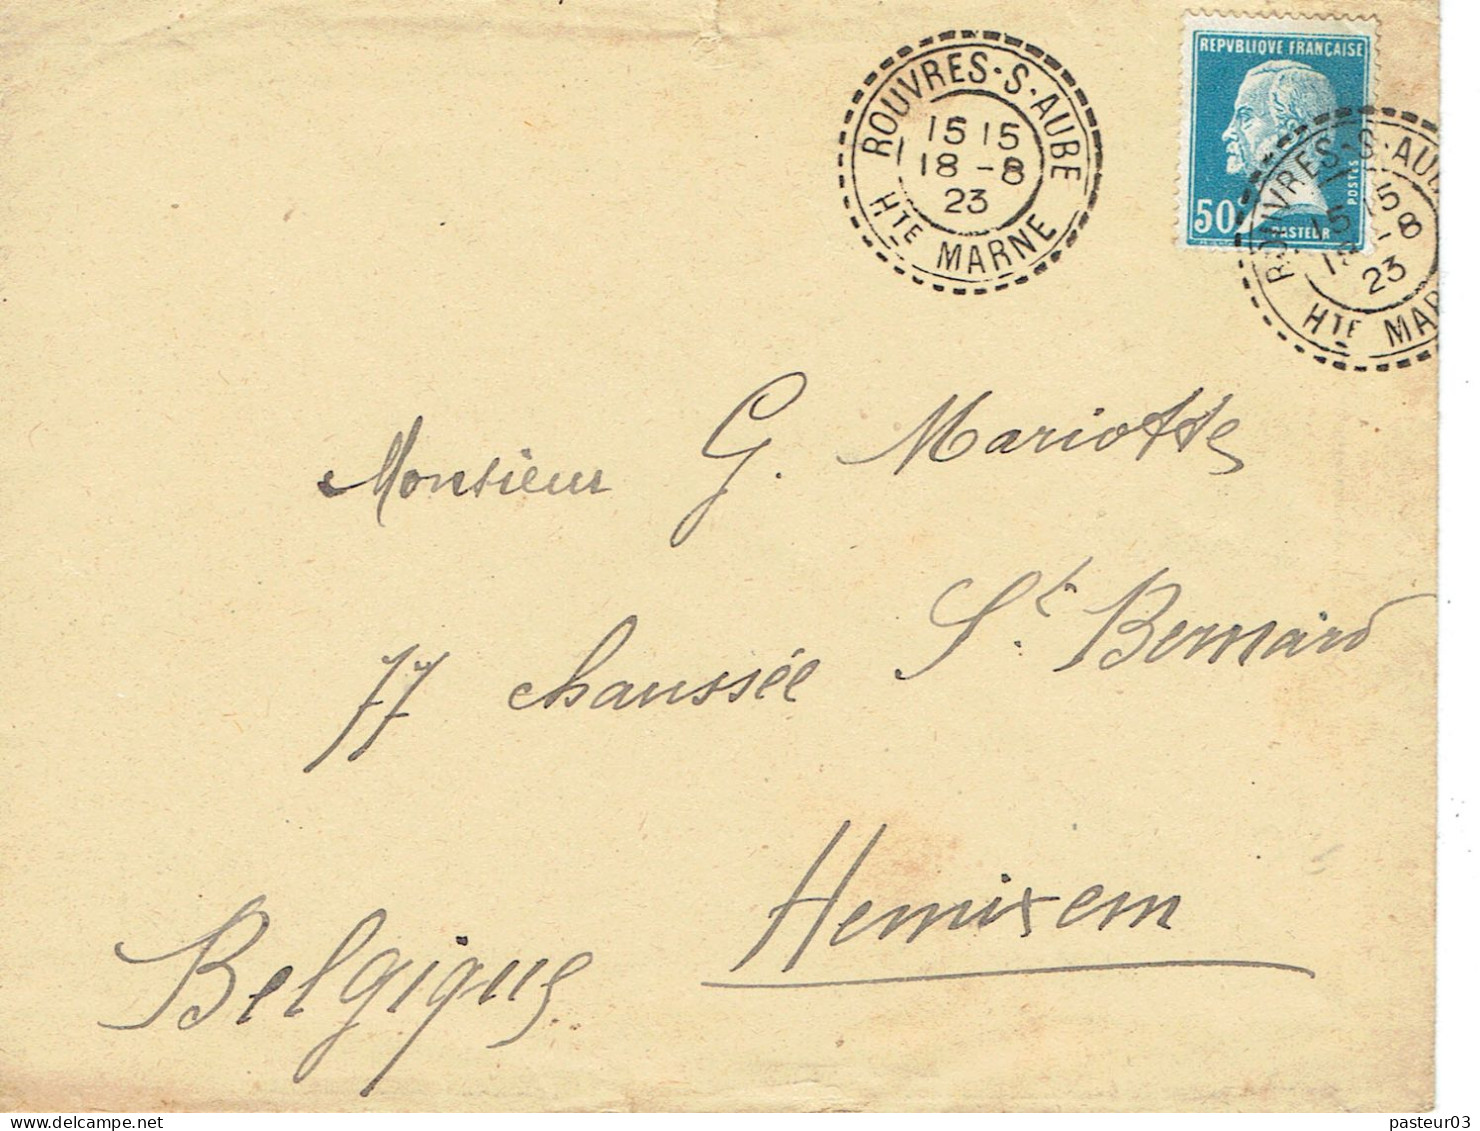 ROUVRES-S-AUBE
15 15
18 -8
23
HTE MARNE
REPVBLIQVE FRANÇAISE
POSTES
50c
PASTEUR
ROUVRES-S-AUB
15 15
18 -8
23
HTE MAR
Monsieur G. Mariotte
77 chaussée St. Bernard
Hemixem
Belgique
pasteur03